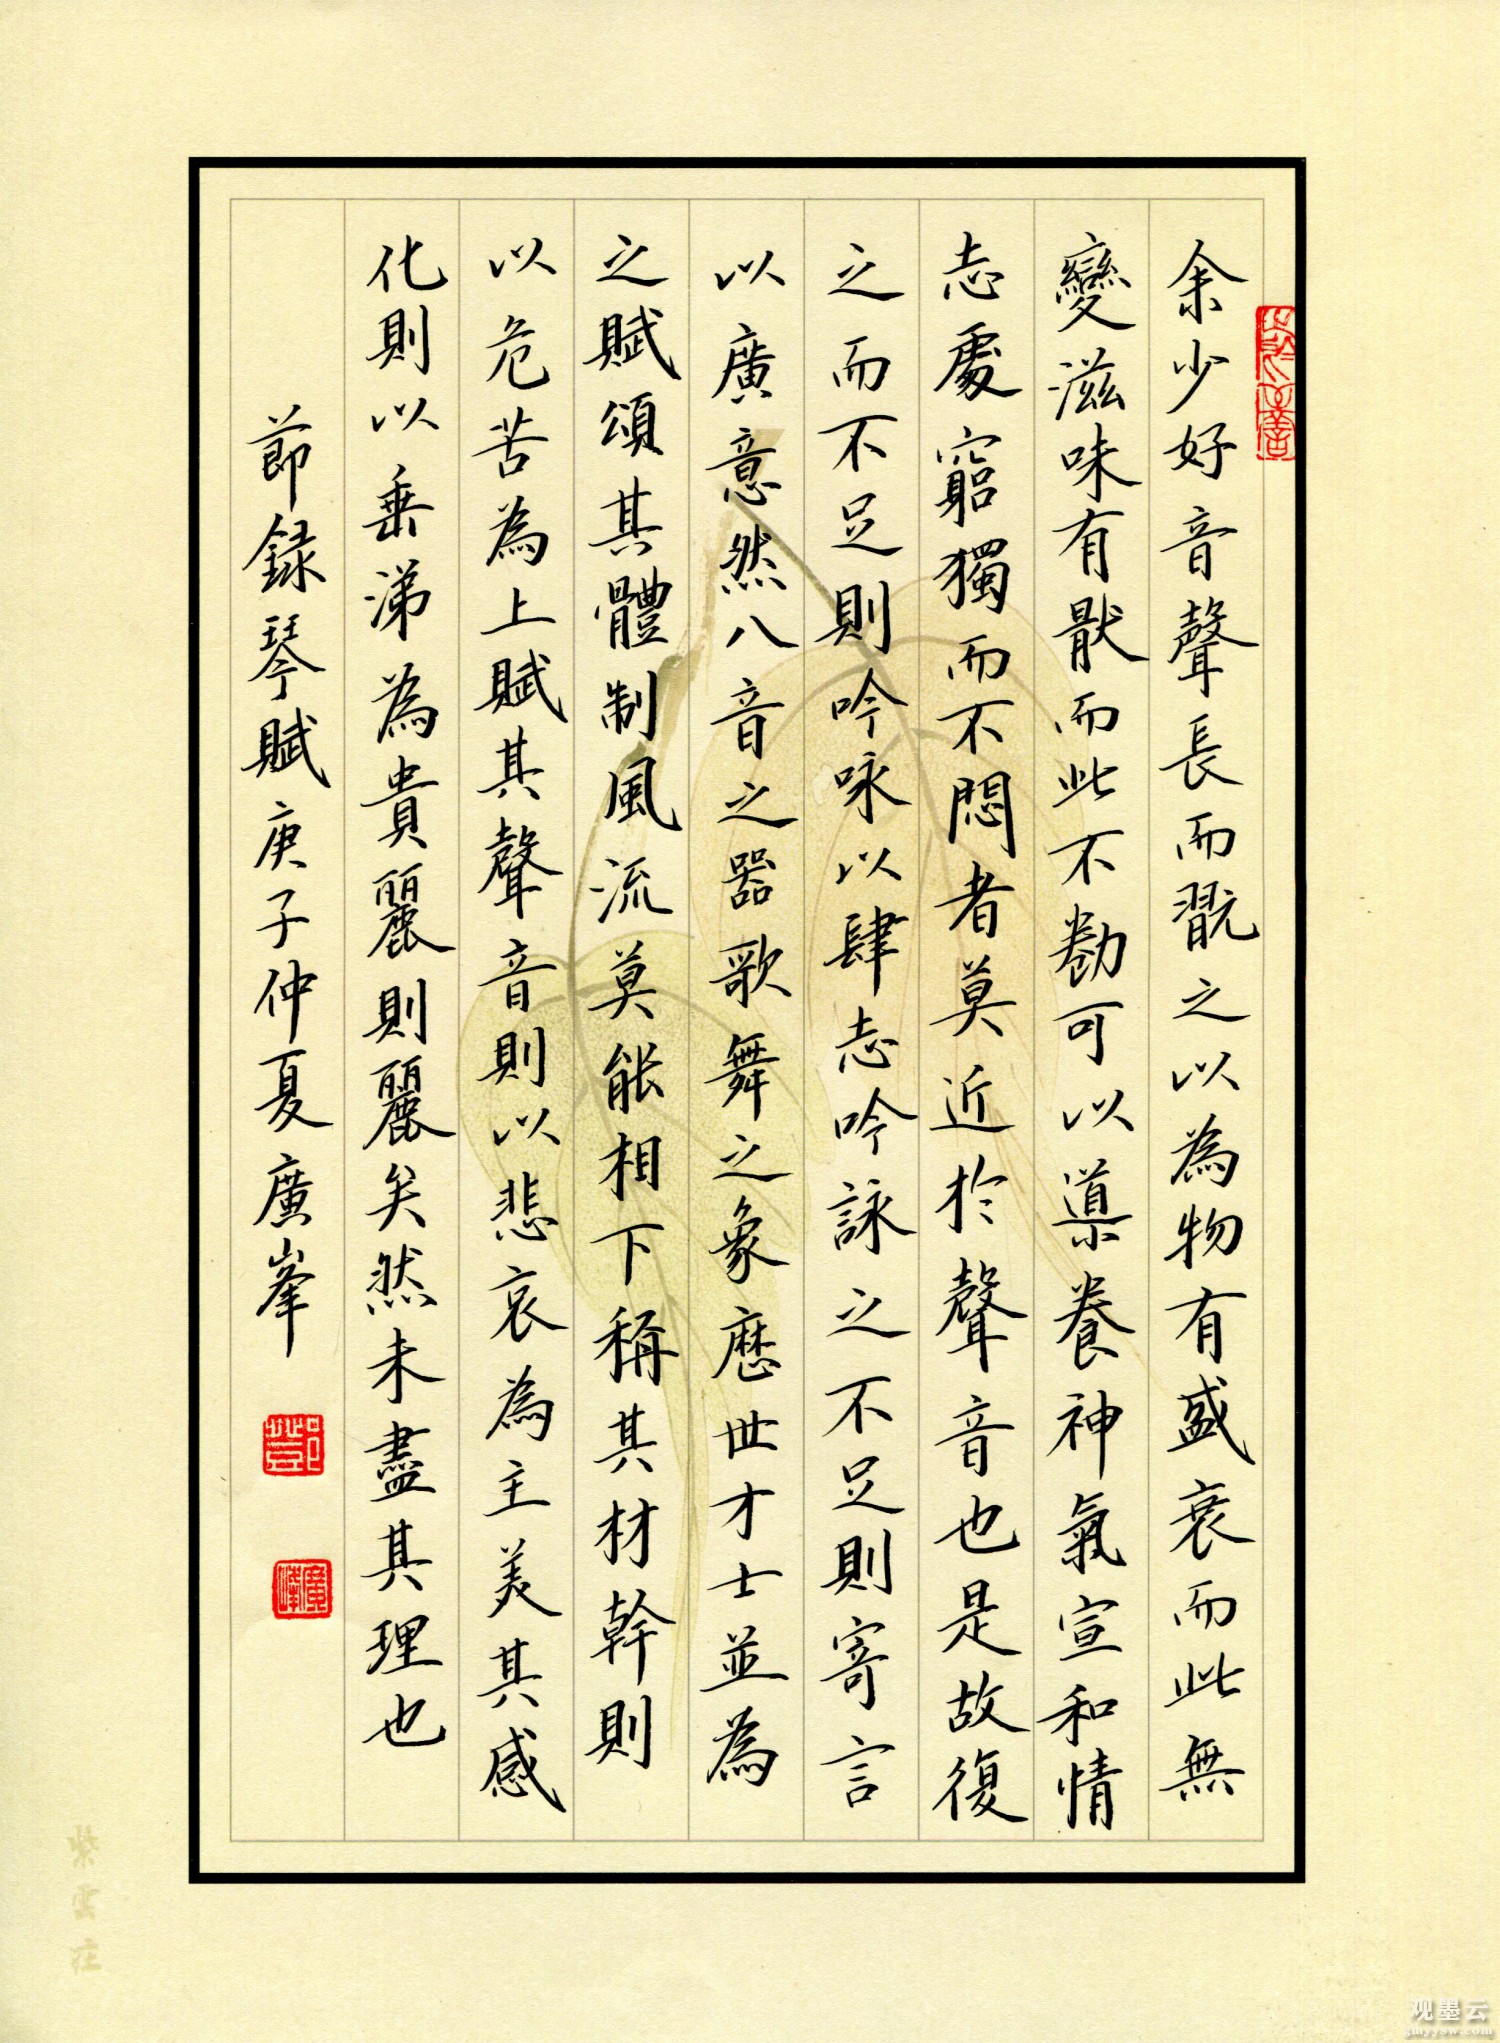 余少好音聲長而翫之以為物有盛衰而此無
變滋味有猒而此不勌可以導養神氣宣和情
志處窮獨而不悶者莫近於聲音也是故復
之而不足則吟咏以肆志吟詠之不足則寄言
以廣意然八音之器歌舞之象歷世才士並為
之賦頌其體制風流莫能相下稱其材幹則
以危苦為上賦其聲音則以悲哀為主美其感
化則以垂涕為貴麗則麗矣然未盡其理也
節録琴賦庚子仲夏廣峯
鄧
廣峰
柴雲莊
观墨云
gmyysw.com